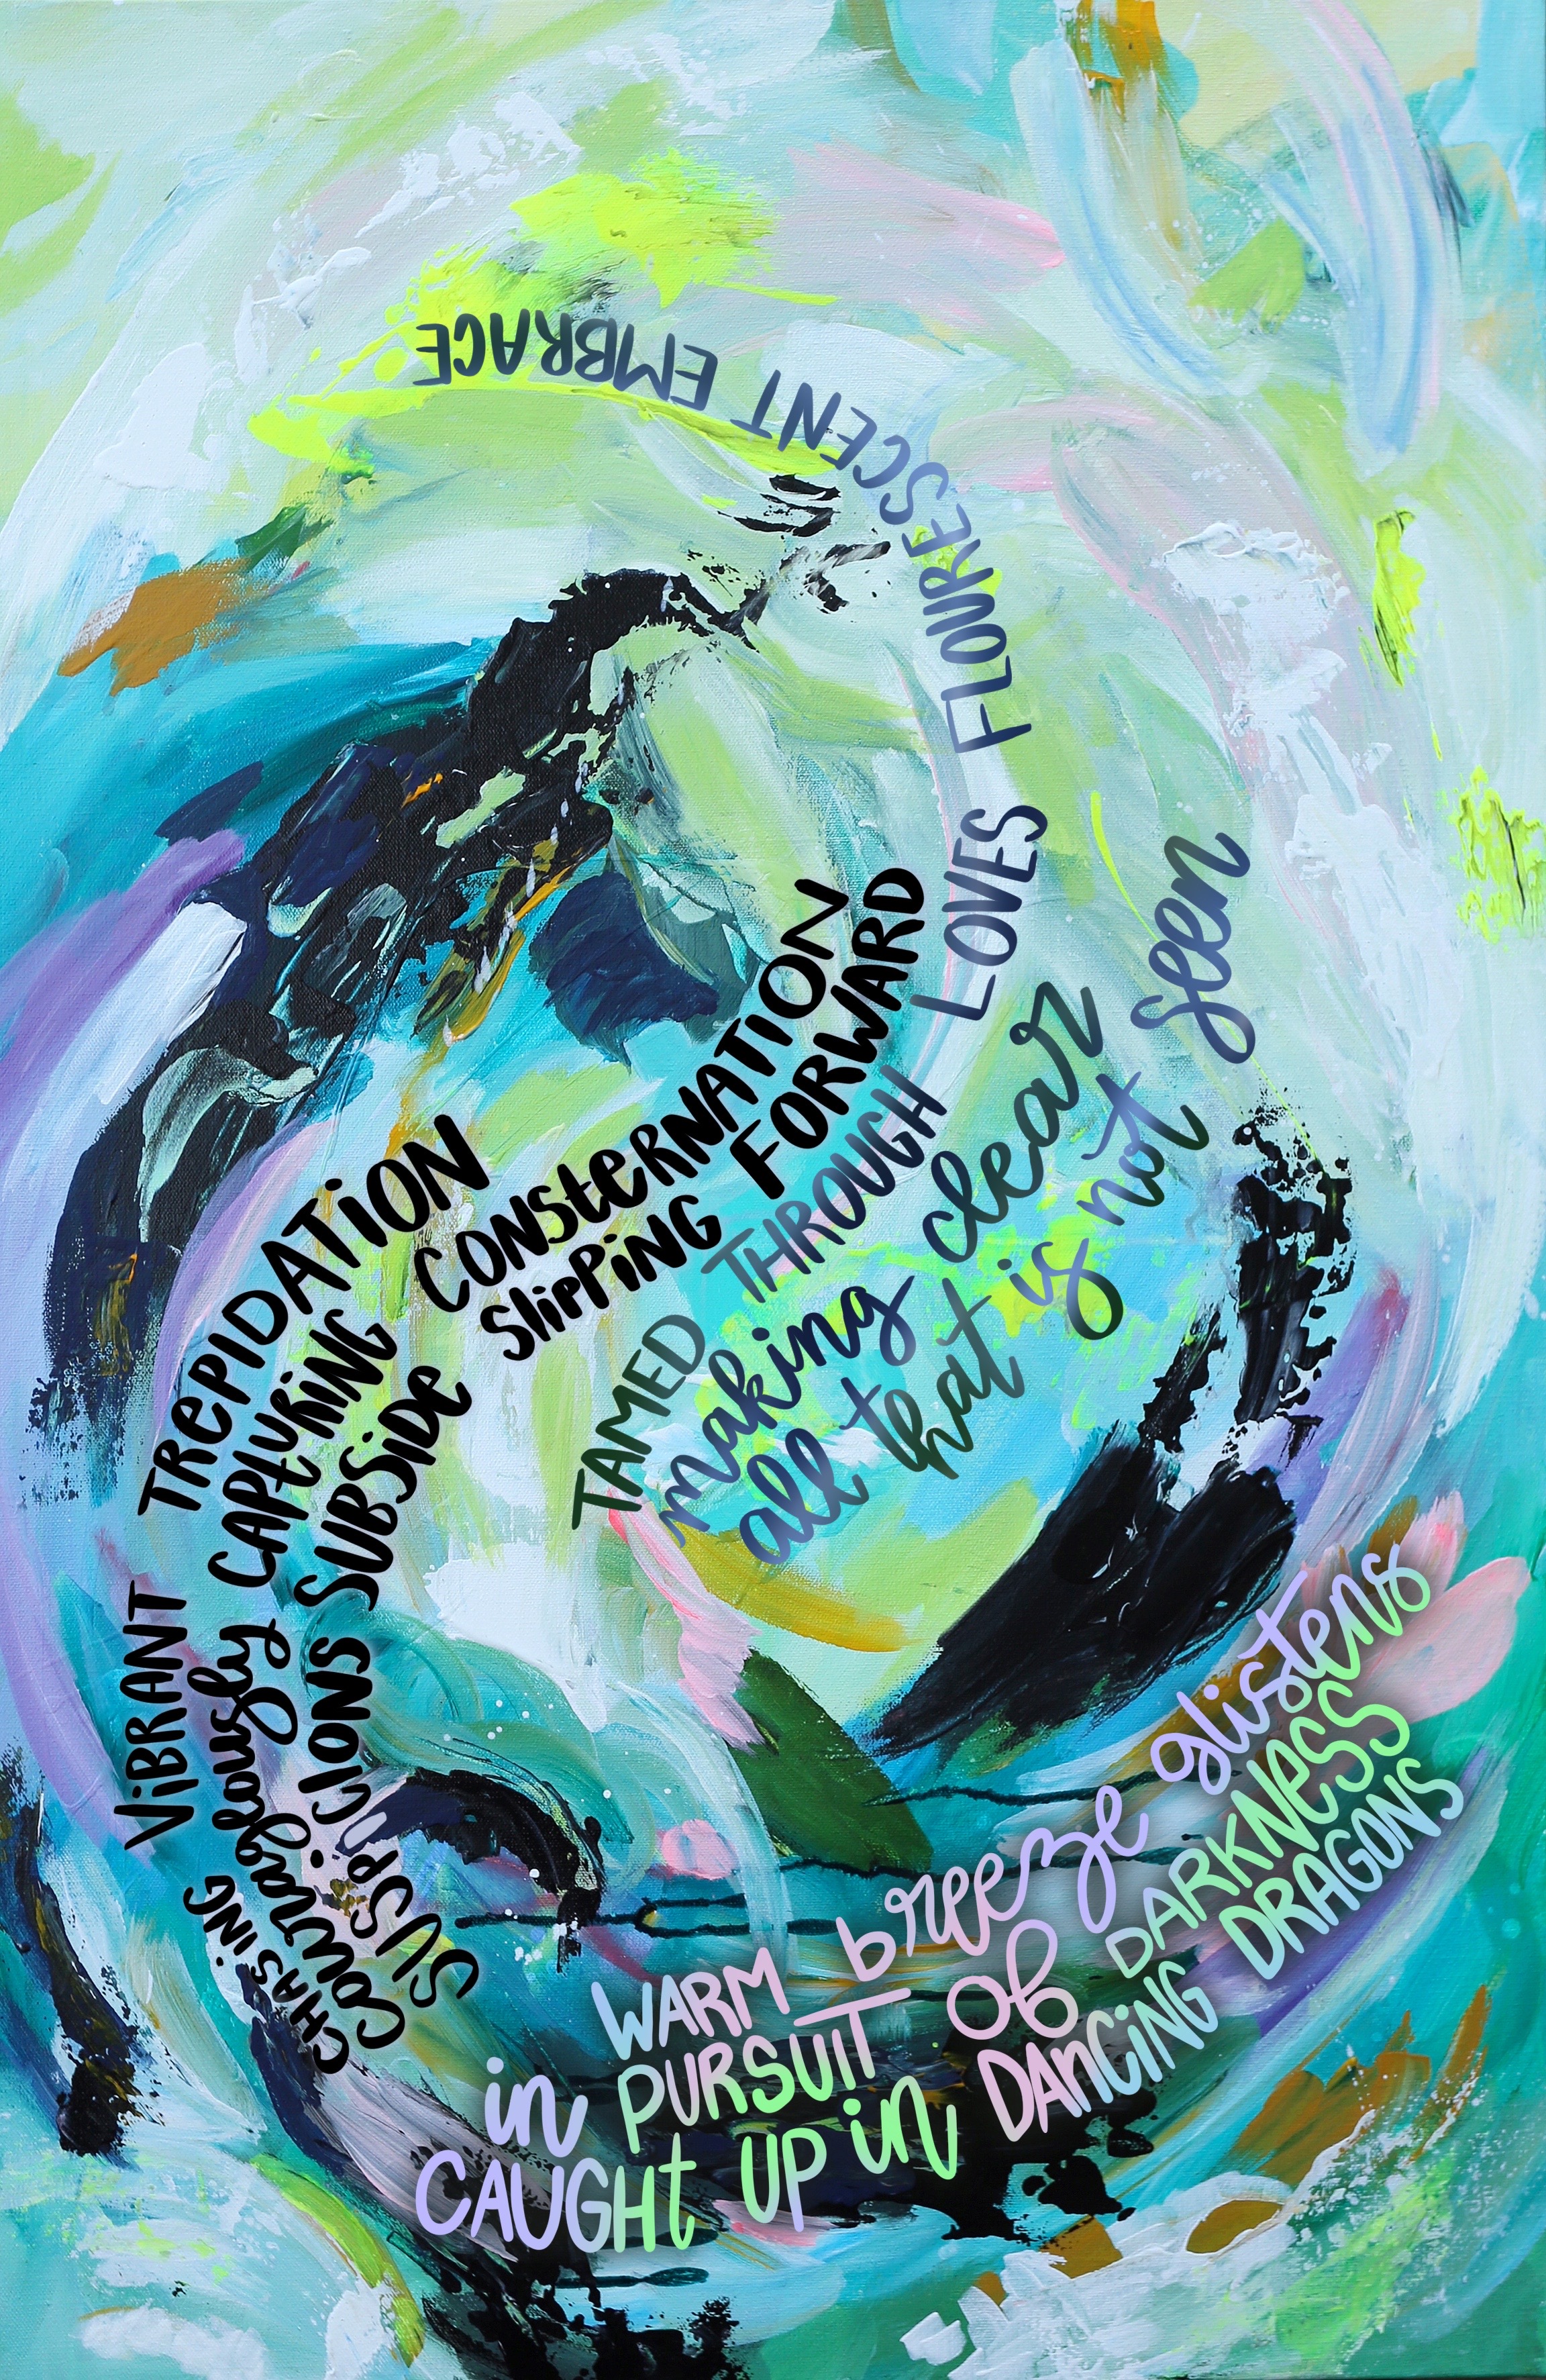 ViBRANT TRePiDATiON
CHASiNG COURAGEOUSLY CAPtURiNG CONSteRNATiON
SUSPiCIONS SUBSiDe SLiPPiNG FORWARD
TAMED THROUGH LOVES FLOURESCENT EMBRACE
making clear
all that is not seen
WARM breeze glistens
in PURSUiT of DARKNeSS
CAUGHt UP in DAnCiNG DRAGONS